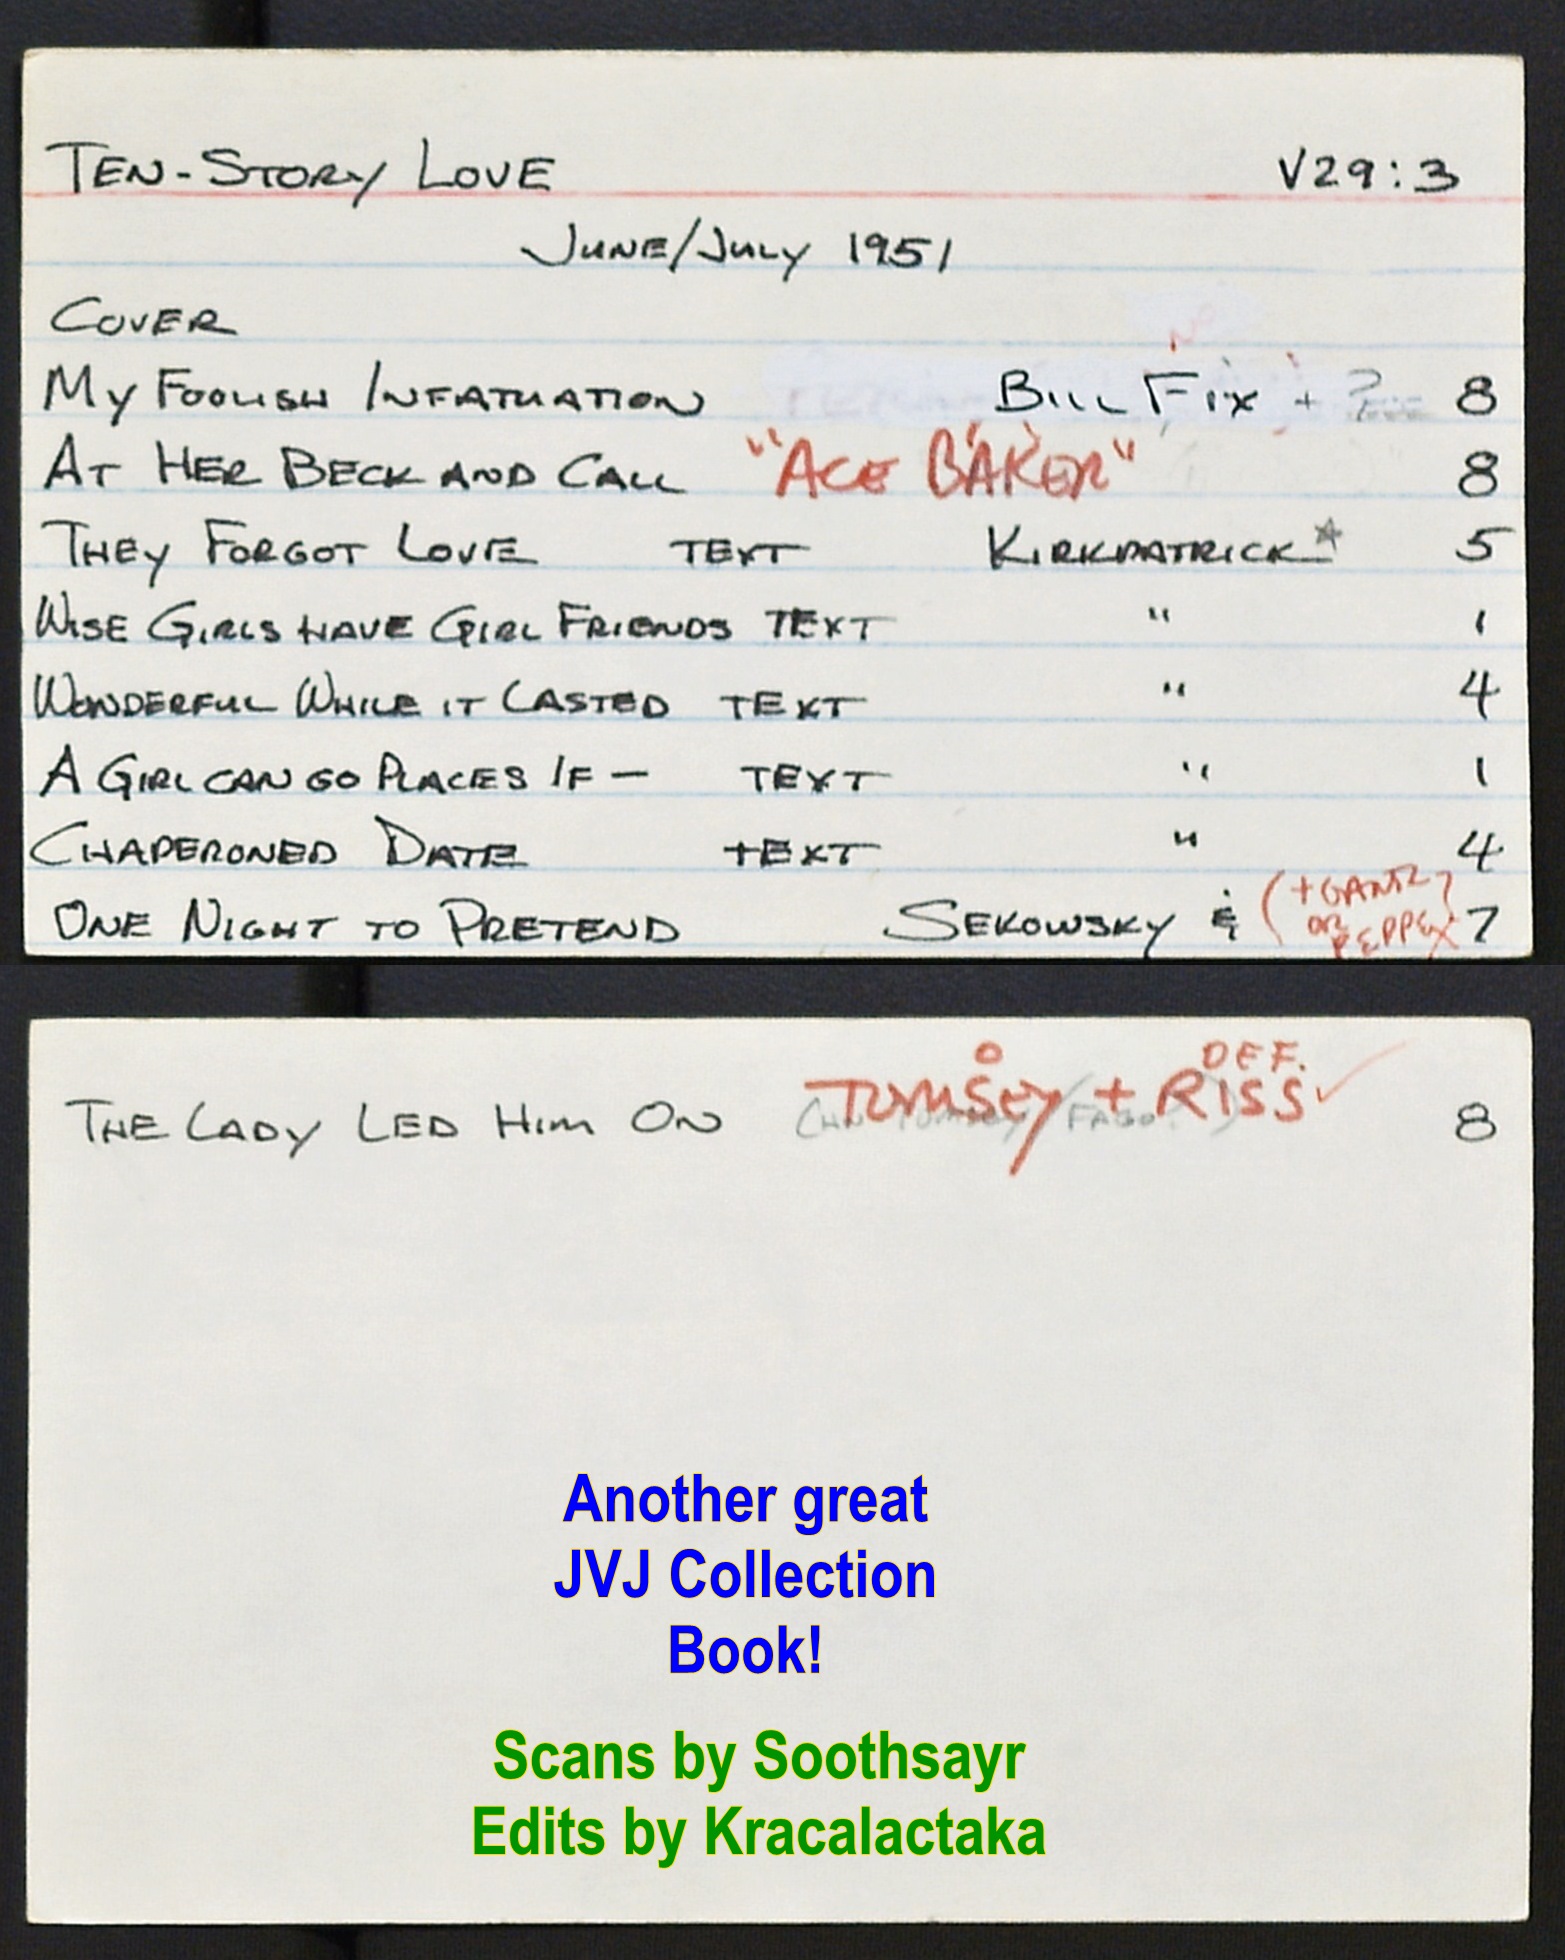 TEN-STORY LOVE V29:3
JUNE/JULY 1951
COVER
MY FOOLISH INFATUATION BILL FIX + ? 8
AT HER BECK AND CALL "ACE BAKER" 8
THEY FORGOT LOVE TEXT KIRKPATRICK* 5
WISE GIRLS HAVE GIRL FRIENDS TEXT " 1
WONDERFUL WHILE IT LASTED TEXT " 4
A GIRL CAN GO PLACES IF — TEXT " 1
CHAPERONED DATE TEXT " 4
ONE NIGHT TO PRETEND SEKOWSKY & (+ GANTZ OR PEPPE) 7
DEF.
THE LADY LED HIM ON TOMSEY + RISS ✓ 8
Another great
JVJ Collection
Book!
Scans by Soothsayr
Edits by Kracalactaka